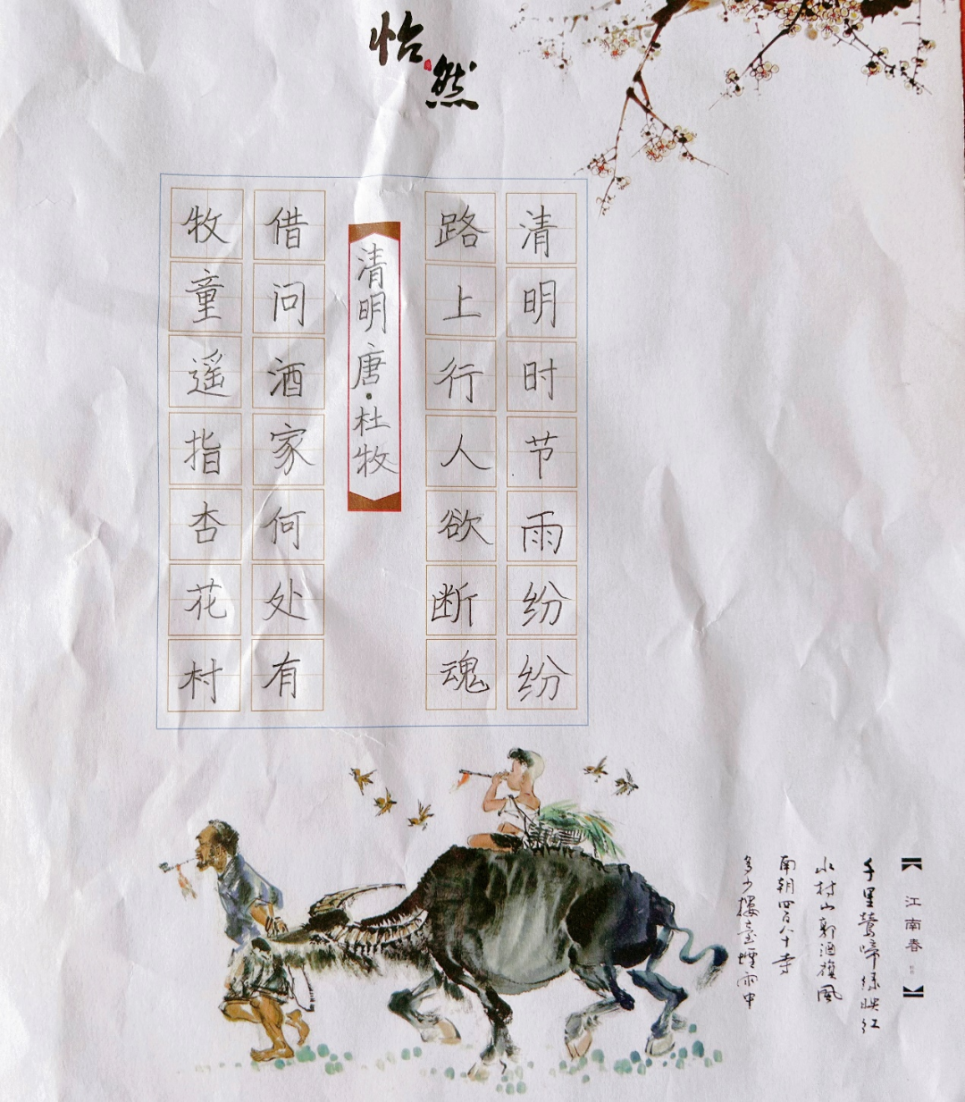 怡然
清明时节雨纷纷
路上行人欲断魂
清明 唐·杜牧
借问酒家何处有
牧童遥指杏花村
【江南春】
千里莺啼绿映红
水村山郭酒旗风
南朝四百八十寺
多少楼臺烟雨中